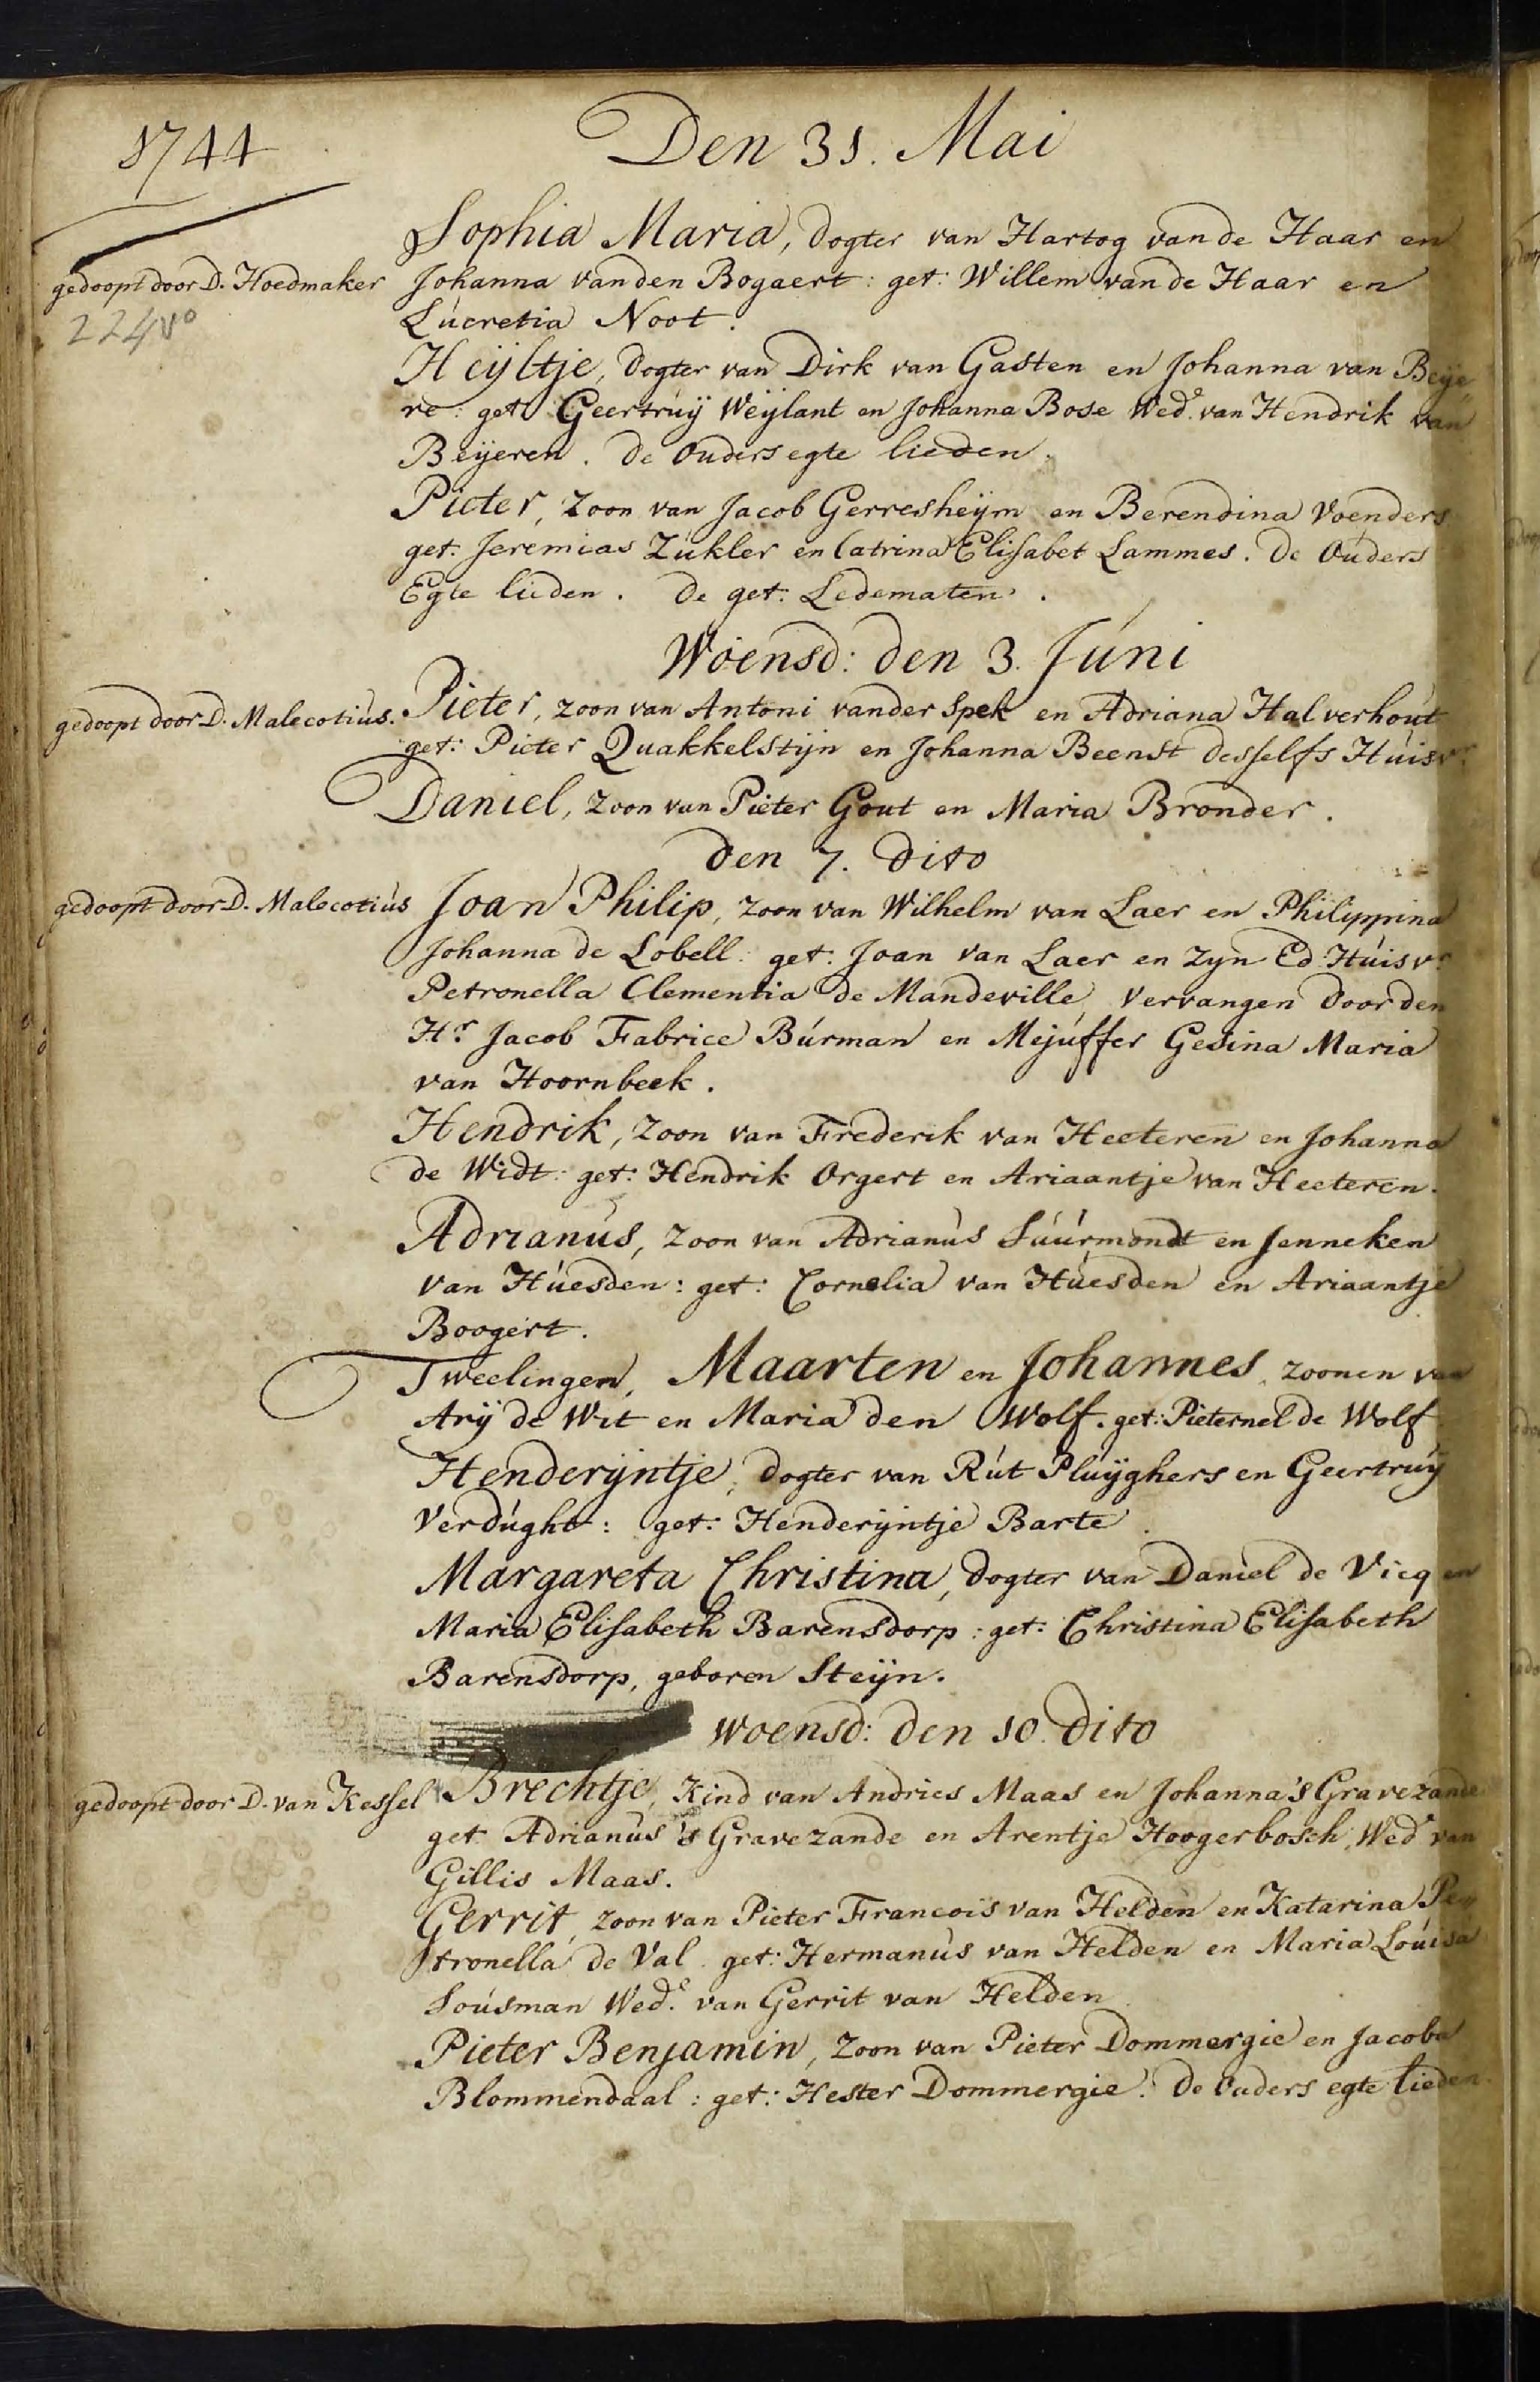 1744
Den 31. Mai
Sophia Maria, dogter van Hartog van de Haar en
gedoopt door D. Hoedmaker
Johanna van den Bogaert: get: Willem van de Haar en
224vo
Lúcretia Noot.
Heijltje, dogter van Dirk van Gasten en Johanna van Beije„
re: get: Geertruij Weijlant en Johanna Bose Wede. van Hendrik van
Beijeren. de Ouders egte lieden.
Pieter, Zoon van Jacob Gerresheijm en Berendina Voenders
get: Jeremias Zúkler en Catrina Elisabet Lammes. de Oúders
Egte lieden. de get: Ledematen.
Woensd: den 3. Júni
gedoopt door D. Malecotiús.
Pieter, zoon van Antoni vander Spek en Adriana Halverhoút
get: Pieter Quakkelstijn en Johanna Beenst desselfs Húisvr.
Daniel, zoon van Pieter Gout en Maria Bronder.
den 7. dito
gedoopt door D. Malecotiús
Joan Philip, zoon van Wilhelm van Laer en Philippina
Johanna de Lobell. get: Joan van Laer en Zyn Ed Húisvr.
Petronella Clementia de Mandeville, vervangen door den
Hr. Jacob Fabrice Búrman en Mejúffer Gesina Maria
van Hoornbeek.
Hendrik, Zoon van Frederik van Heeteren en Johanna
de Widt: get: Hendrik Orgert en Ariaantje van Heeteren.
Adrianús, Zoon van Adrianús Súúrmondt en Jenneken
van Húesden: get: Cornelia van Húesden en Ariaantje
Boogert.
Tweelingen, Maarten en Johannes, zoonen van
Arij de Wit en Maria den Wolf. get: Pieternel de Wolf
Henderijntje, dogter van Rút Plúijghers en Geertruij
Verdúght: get: Henderijntje Barte
Margareta Christina, dogter van Daniel de Vicq en
Maria Elisabeth Barensdorp: get: Christina Elisabeth
Barensdorp, geboren Steijn.
woensd: den 10. dito
gedoopt door D. van Kessel
Brechtje, Kind van Andries Maas en Johanna 's Gravezande
get: Adrianús 's Gravezande en Arentje Hoogerbosch, Wede van
Gillis Maas.
Gerrit, zoon van Pieter Francois van Helden en Katarina Pe„
tronella de Val. get: Hermanús van Helden en Maria Loúisa
Soúsman Wede. van Gerrit van Helden
Pieter Benjamin, Zoon van Pieter Dommergie en Jacoba
Blommendaal: get: Hester Dommergie. De Ouders egte lieden.